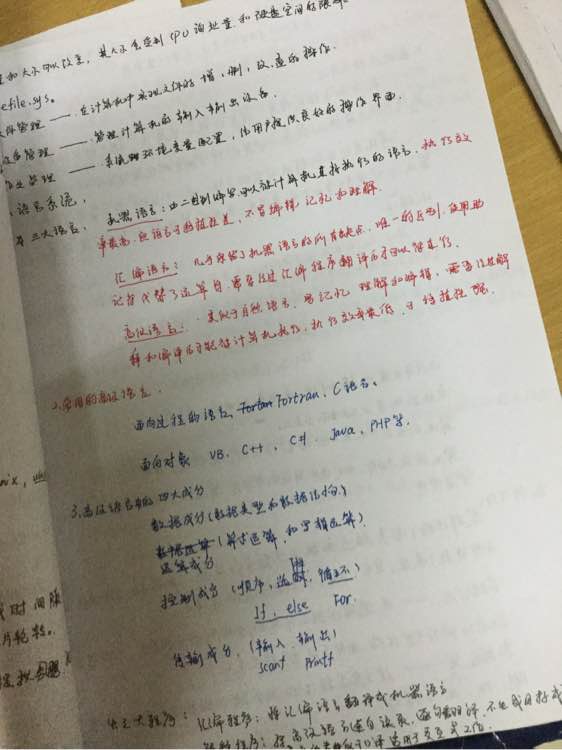 和大小可以改变，其大小受到CPU的处置和硬盘空间的限制。
efile.sys。
管理 —— 在计算机中实现文件的增，删，改，查的操作。
设备管理 —— 管理计算机的输入输出设备。
作业管理 —— 系统环境变量配置，给用户提供良好的操作界面。
语言系统，
三大语言，机器语言：由二进制编写可以被计算机直接执行的语言，执行效
率最高，但语言可移植性差，不易编辑记忆和理解。
汇编语言：几乎保留了机器语言的所有缺点，唯一的区别，使用助
记符代替了运算符，需要经过汇编程序翻译后才可以被执行。
高级语言：类似于自然语言，易记忆理解和编辑，需要经过解
释和编译后才能被计算机执行，执行效率最低，可移植性强。
2.常用的高级语言。
面向过程的语言，Fortran、C语言、
面向对象 VB、C++、C#、Java、PHP等。
3.高级语言中的四大成分
数据成分（数据类型和数据结构）
运算成分（算术运算，和逻辑运算）
控制成分（顺序，选择，循环）
If，else For
传输成分，（输入，输出）
scanf printf
nix，
时间
片轮转。
三大程序：汇编程序：将汇编语言翻译成机器语言
解释程序：